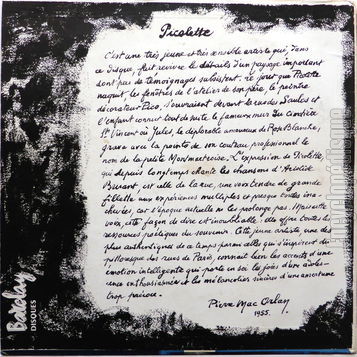 Picolette
C'est une très jeune et très sensible artiste qui, dans
ce disque, fait revivre les détails d'un paysage important
dont pas de témoignages subsistent. Le jour que Picolette
naquit les fenêtres de l'atelier de son père, le peintre
décorateur Pico, s'ouvraient devant la rue des Saules et
l'enfant connut tout de suite le fameux mur du cimetière
St Vincent où Jules, le déplorable amoureux de Rose Blanche,
grava avec la pointe de son couteau professionnel le
nom de la petite Montmartroise. L'expression de Picolette,
qui depuis longtemps chante les chansons d'Aristide
Bruant, est celle de la rue, une voix tendre de grande
fillette aux expériences multiples et presque toutes ina-
chevées, car l'époque actuelle ne les prolonge pas. Mais cette
voix, cette façon de dire est inoubliable: elle offre toutes les
ressources poétiques du souvenir. Cette jeune artiste, une des
plus authentiques de ce temps parmi celles qui s'inspirent du
pittoresque des rues de Paris, connait bien les accents d'une
émotion intelligente qui porte en soi les joies d'une adoles-
cence enthousiasmée et les mélancolies sincères d'une aventure
trop précoce.
Pierre Mac Orlan
1955.
Barclay
DISQUES